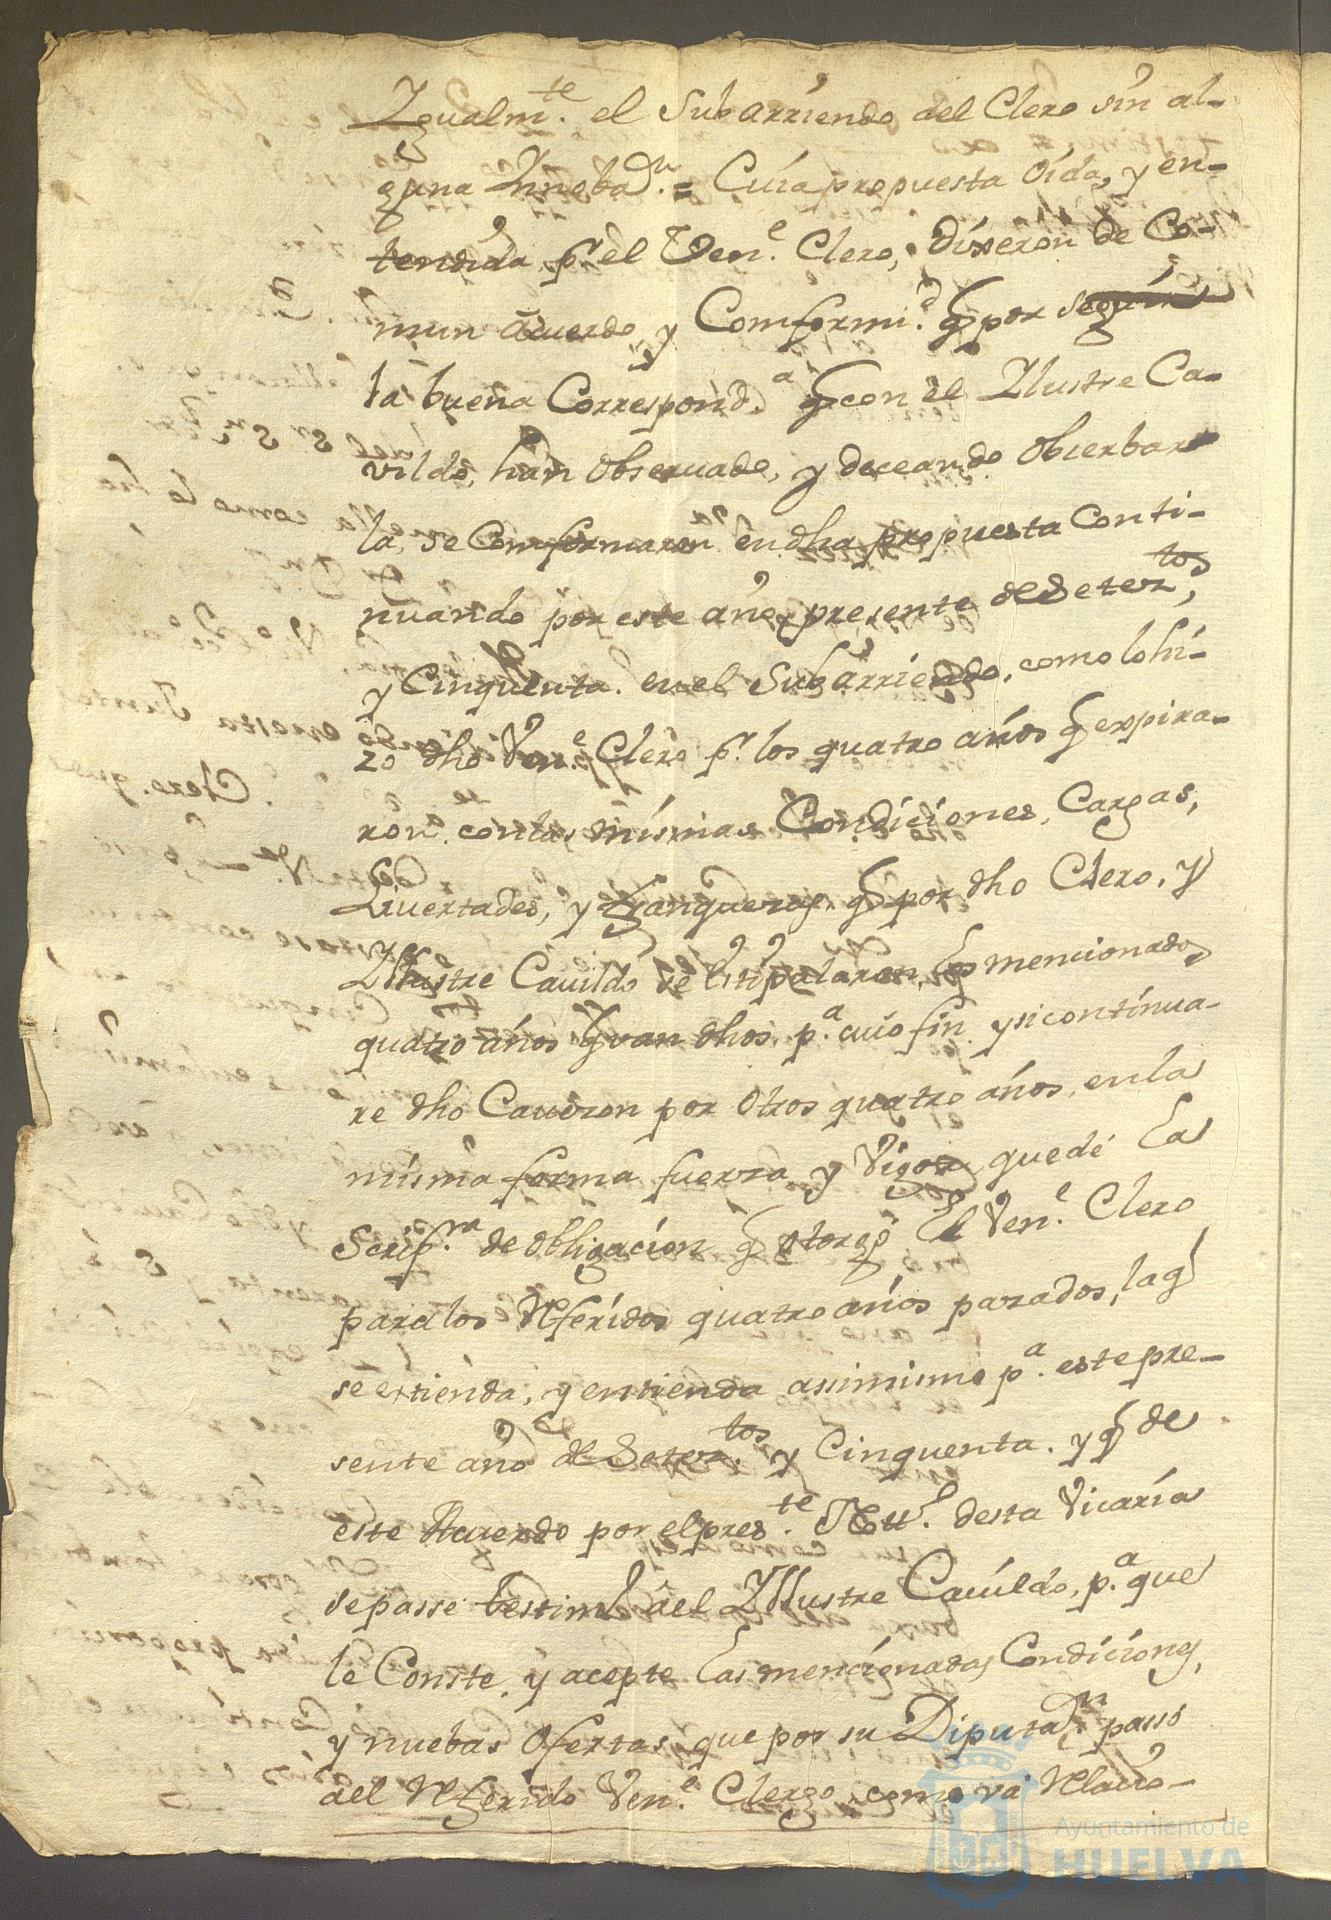 Igualm.te el Subarriendo del Clero sin al-
guna Innobaz.n = Cuia propuesta oida, y en-
tendida p.r el Ven.e Clero, dixeron de Co-
mun acuerdo, y Comformi.d q por seguir
la buena Correspond.a q con el Illustre Ca-
vildo, han observado, y deceando obserbar
la, se Comformaron en dha propuesta Conti-
nuando por este año presente de Setez.tos
y Cinquenta. en el Subarriendo, como lo hi-
zo dho Ven.e Clero p.r los quatro años q expira-
ron. con las mismas Condiciones, Cargas,
Livertades, y franquezas, q por dho Clero, y
Illustre Cauildo se Estipularon, los mencionados
quatro años q van dhos. p.a cuio fin y si continua-
re dho Cauezon por otros quatro años, en la
misma forma fuerza y Vigor quede la
Scrip.ra de obligacion q otorgo el Ven.e Clero
para los Referidos quatro años pasados, la q
se extienda, y entienda assimismo p.a este pre-
sente año de Setez.tos y Cinquenta. y q de
este Acuerdo por el pres.te Nott.o desta Vicaria
se passe testim.o del Illustre Cauildo, p.a que
le Conste, y acepte las mencionadas Condiciones,
y nuebas Ofertas, que por su Diputaz.n passo
del Referido Ven.e Clero, como va Relacio-
Ayuntamiento de
HUELVA